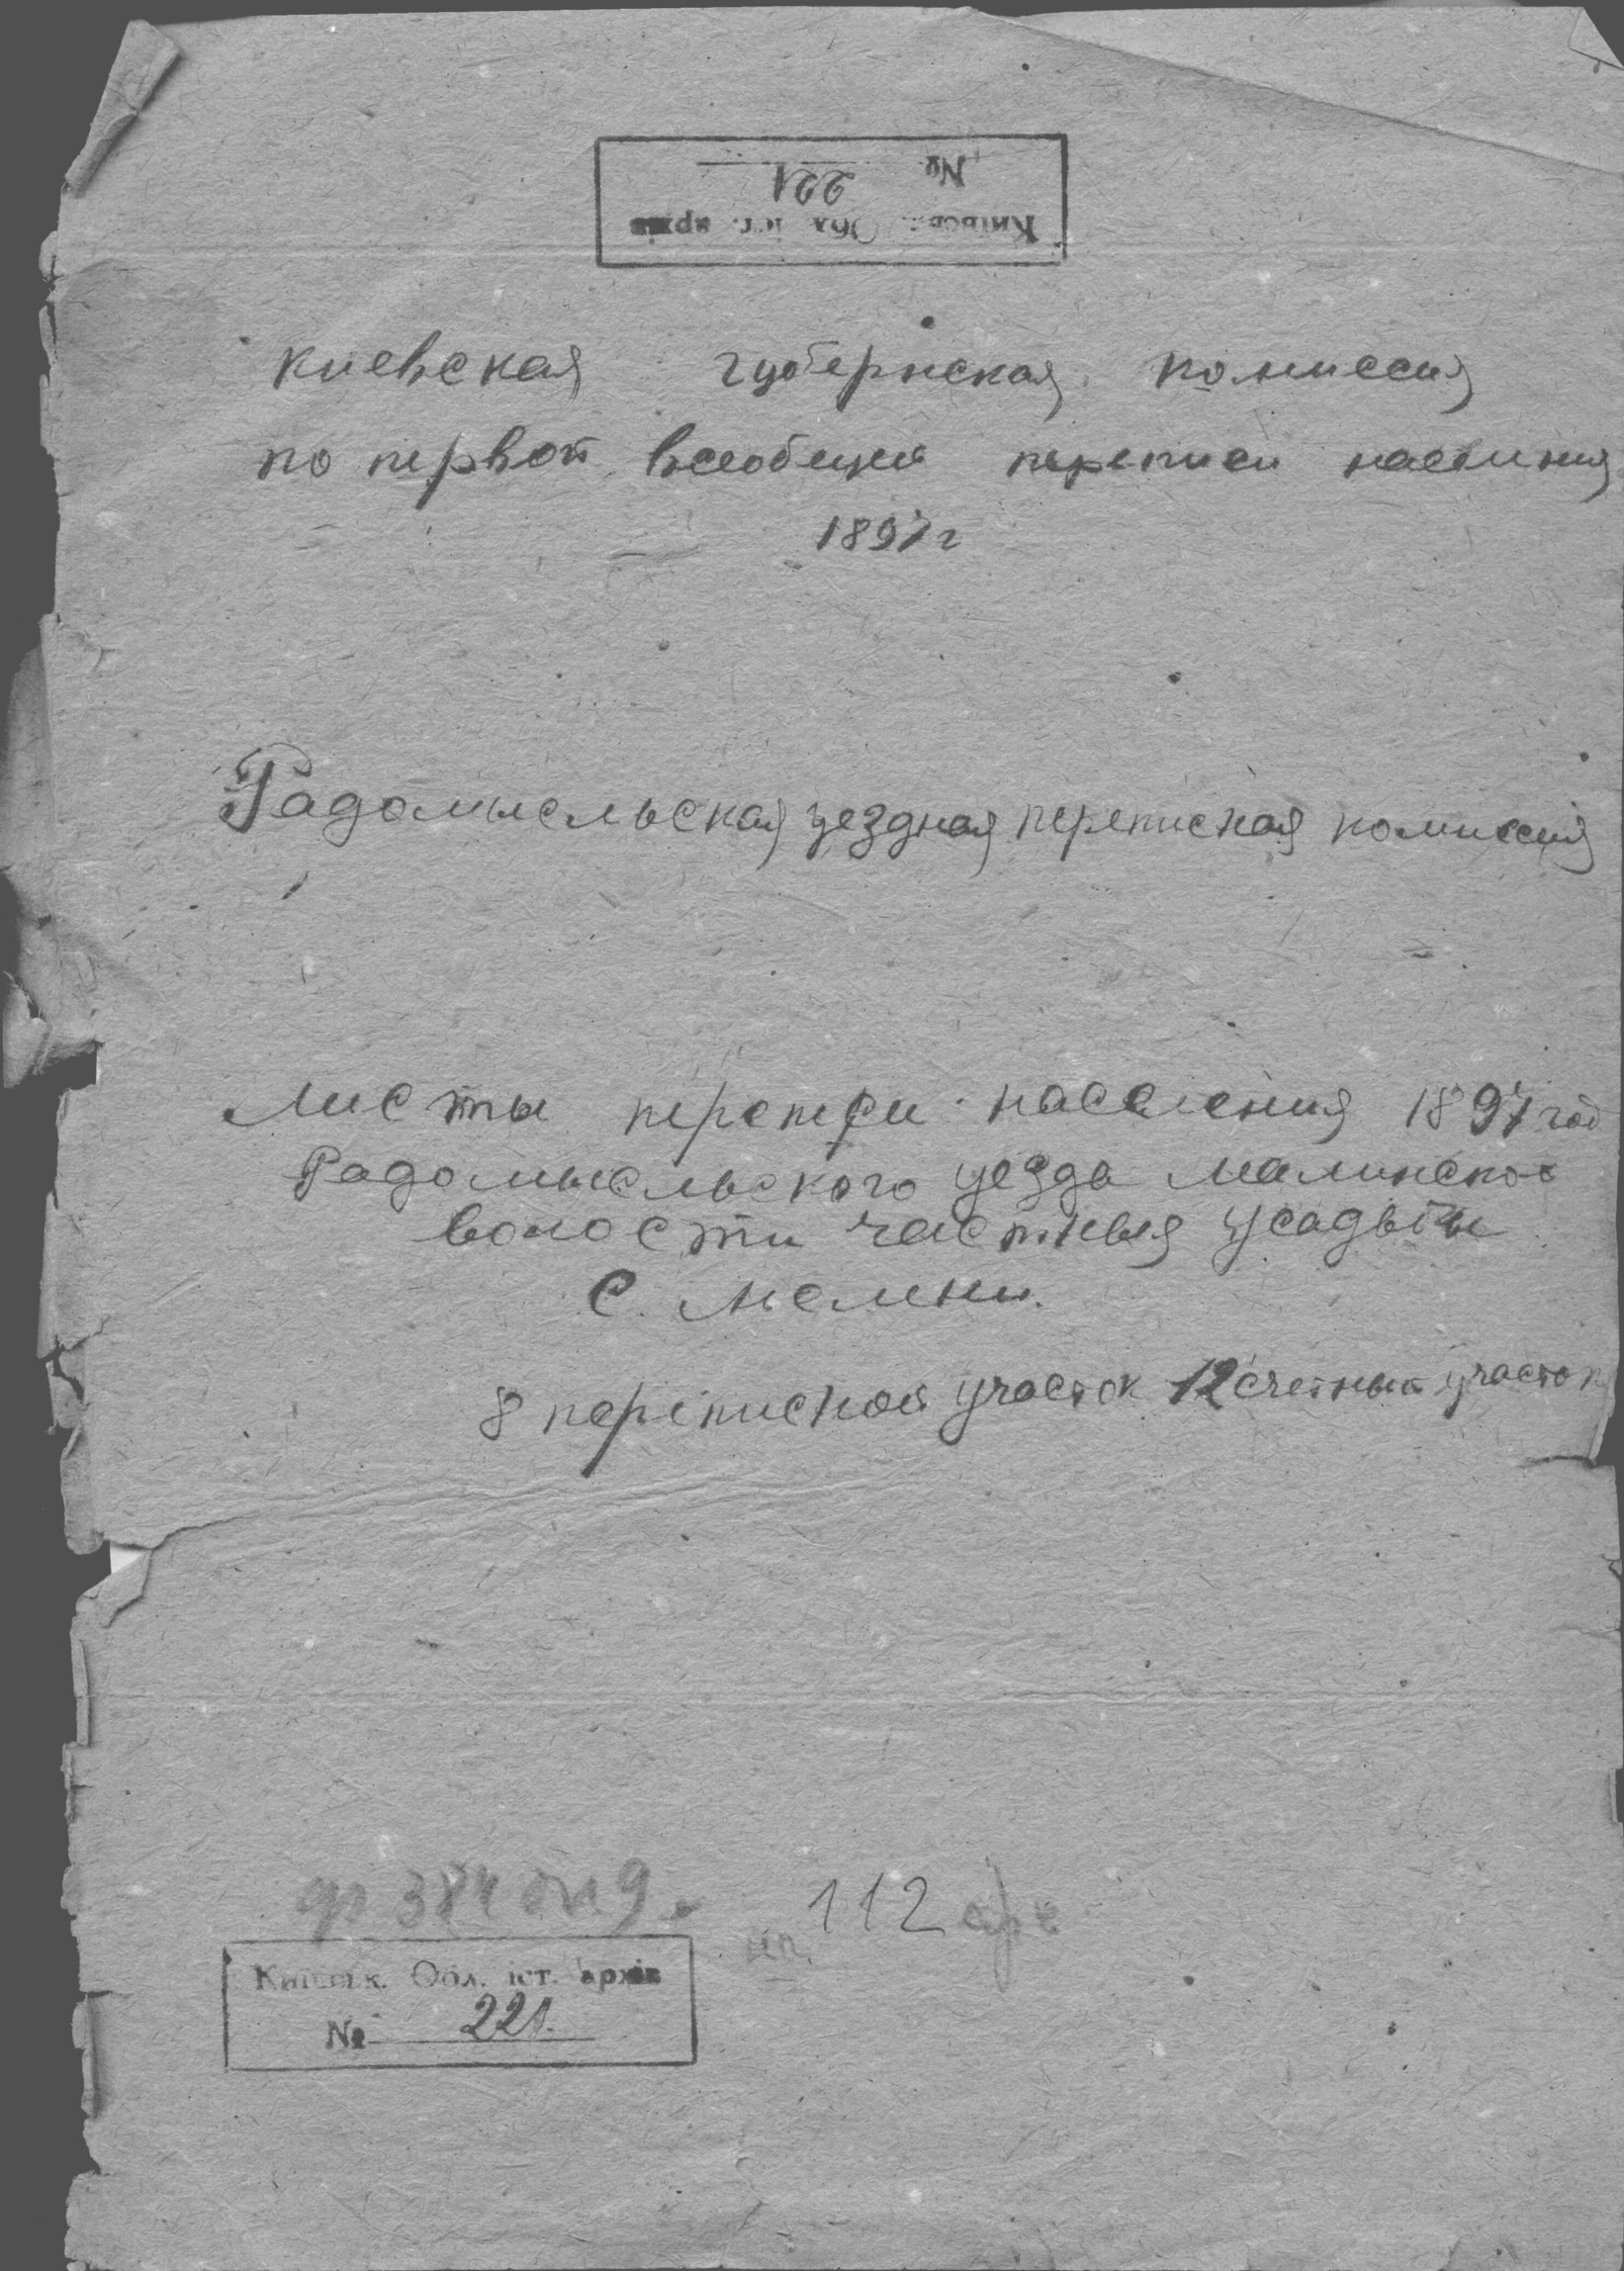 № 221
Київськ. Обл. іст. архів
Киевская губернская комиссия
по первой всеобщей переписи населения
1897 г
Радомысльская уездная переписная комиссия
Листы переписи населения 1897 год
Радомысльского уезда Малинской
волости частныя усадьбы
С. Мелени.
8 переписной участок 12 счетный участок
ф 384 оп 9.
112 арк
Київськ. Обл. іст. архів
№ 221.